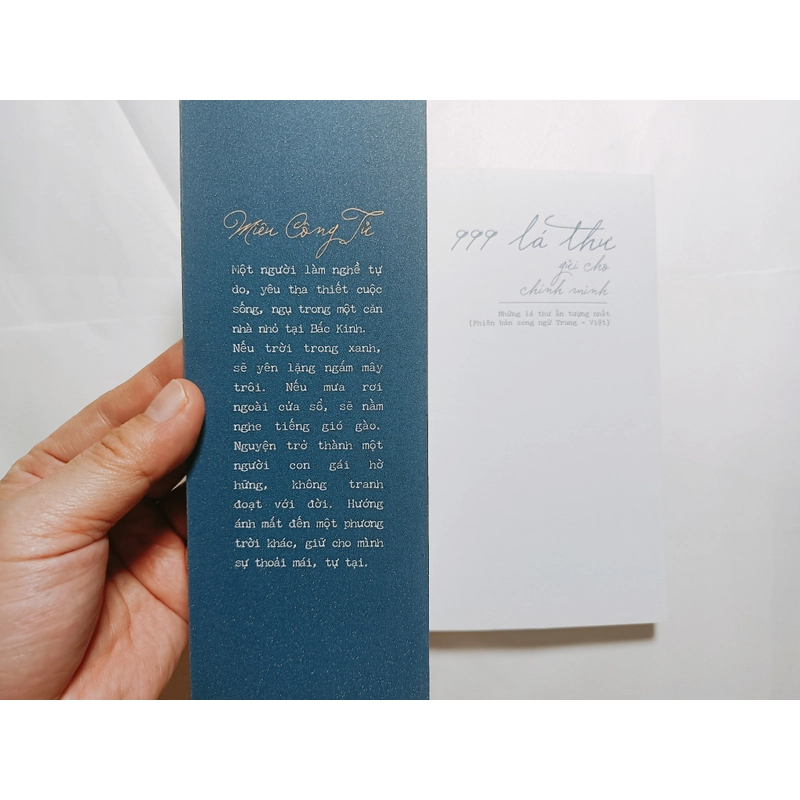 Miêu Công Tử
Một người làm nghề tự
do, yêu tha thiết cuộc
sống, ngụ trong một căn
nhà nhỏ tại Bắc Kinh.
Nếu trời trong xanh,
sẽ yên lặng ngắm mây
trôi. Nếu mưa rơi
ngoài cửa sổ, sẽ nằm
nghe tiếng gió gào.
Nguyện trở thành một
người con gái hờ
hững, không tranh
đoạt với đời. Hướng
ánh mắt đến một phương
trời khác, giữ cho mình
sự thoải mái, tự tại.
999 lá thư
gửi cho
chính mình
Những lá thư ấn tượng nhất
(Phiên bản song ngữ Trung - Việt)